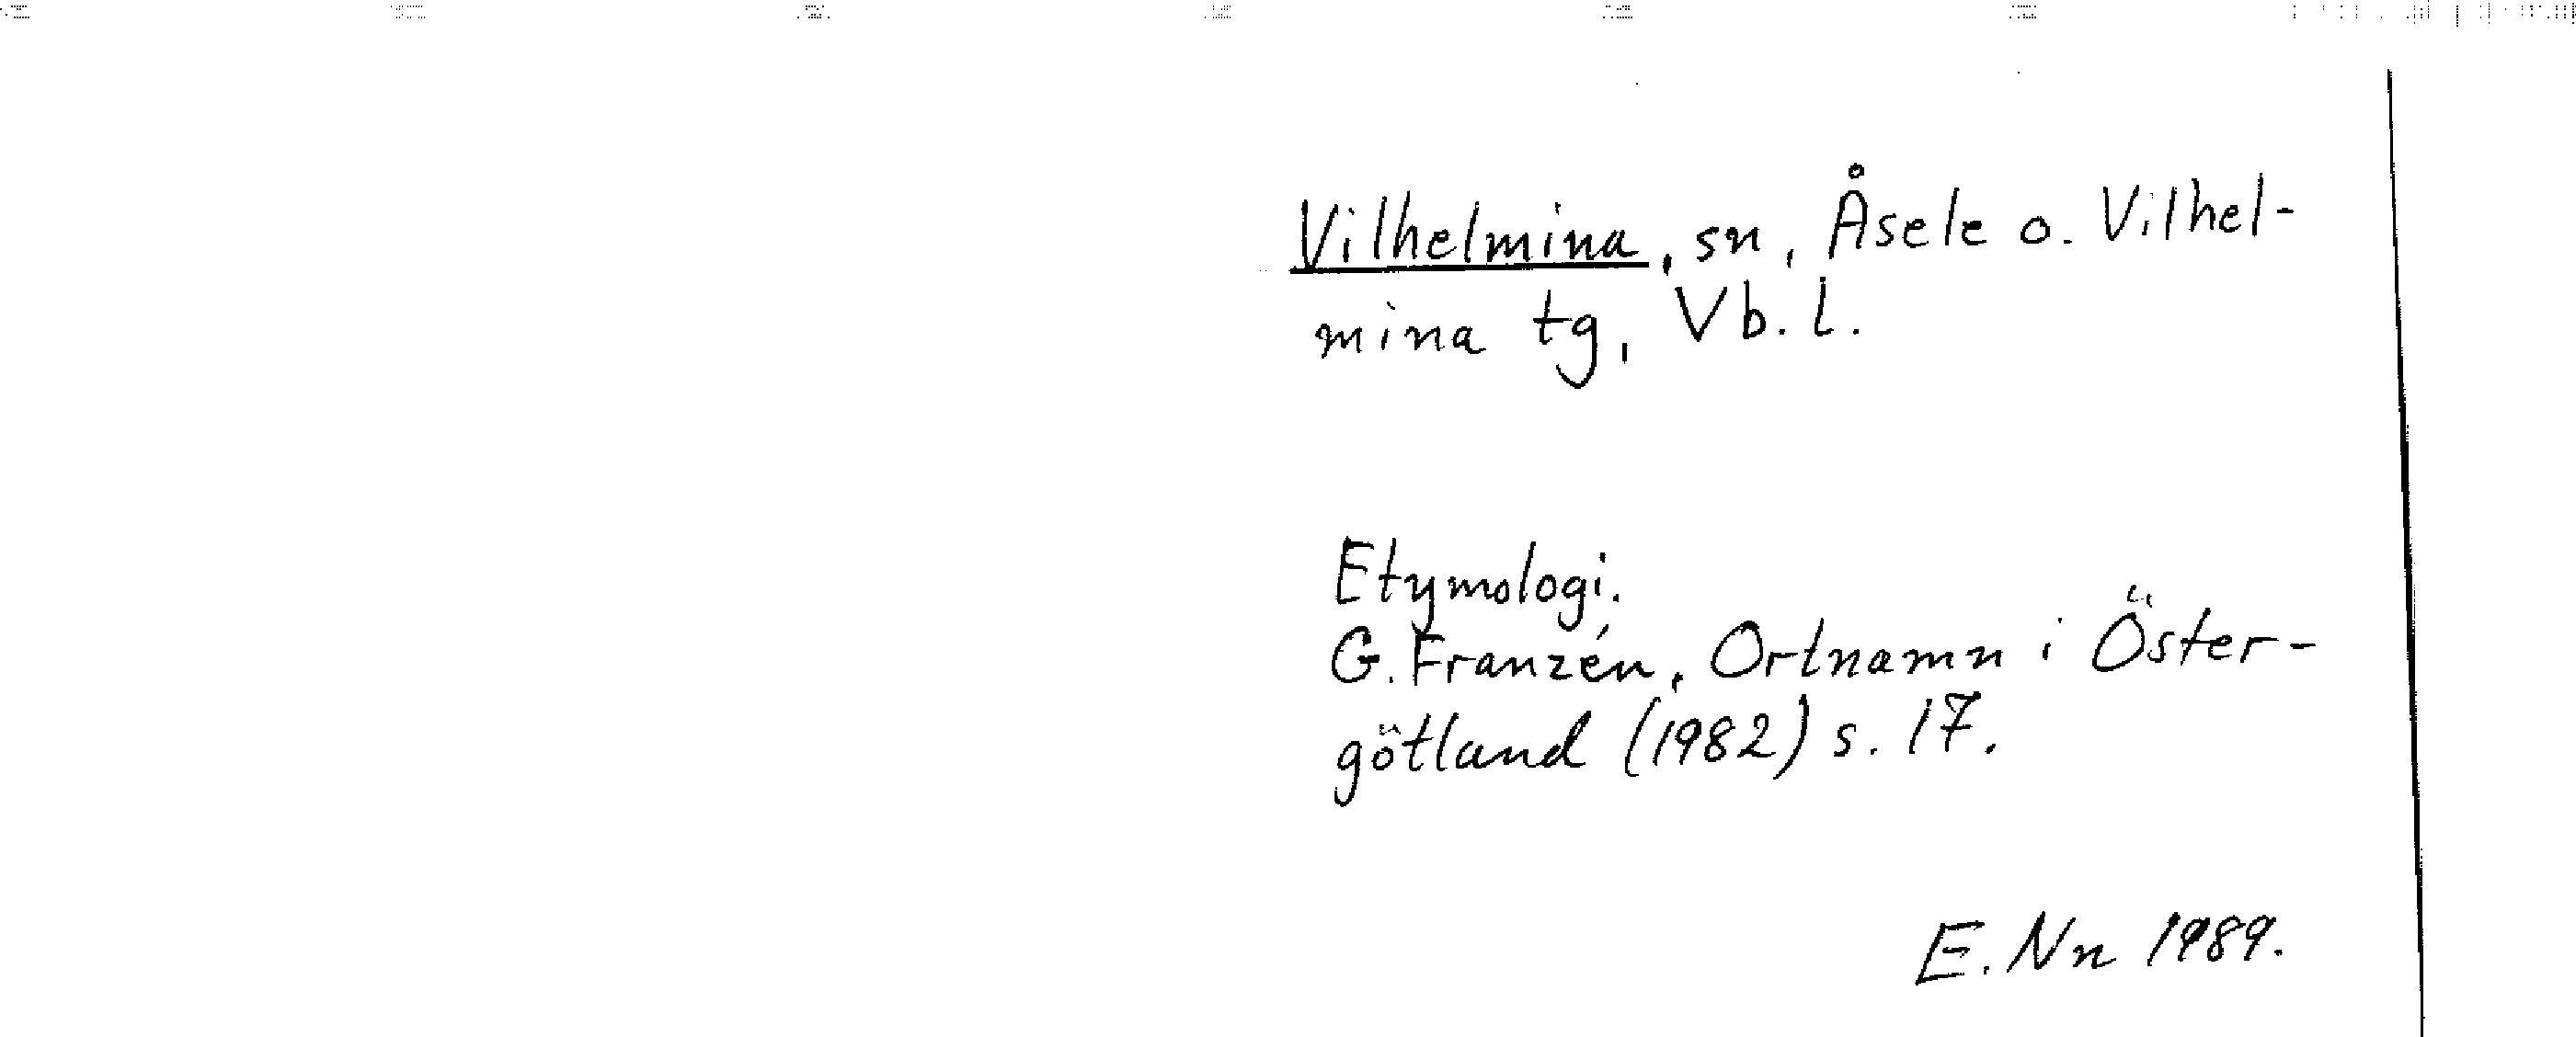 Vilhelmina, sn, Åsele o. Vilhel-
mina tg, Vb. l.
Etymologi.
G. Franzén, Ortnamn i Öster-
götland (1982) s. 17.
E. Nn 1989.